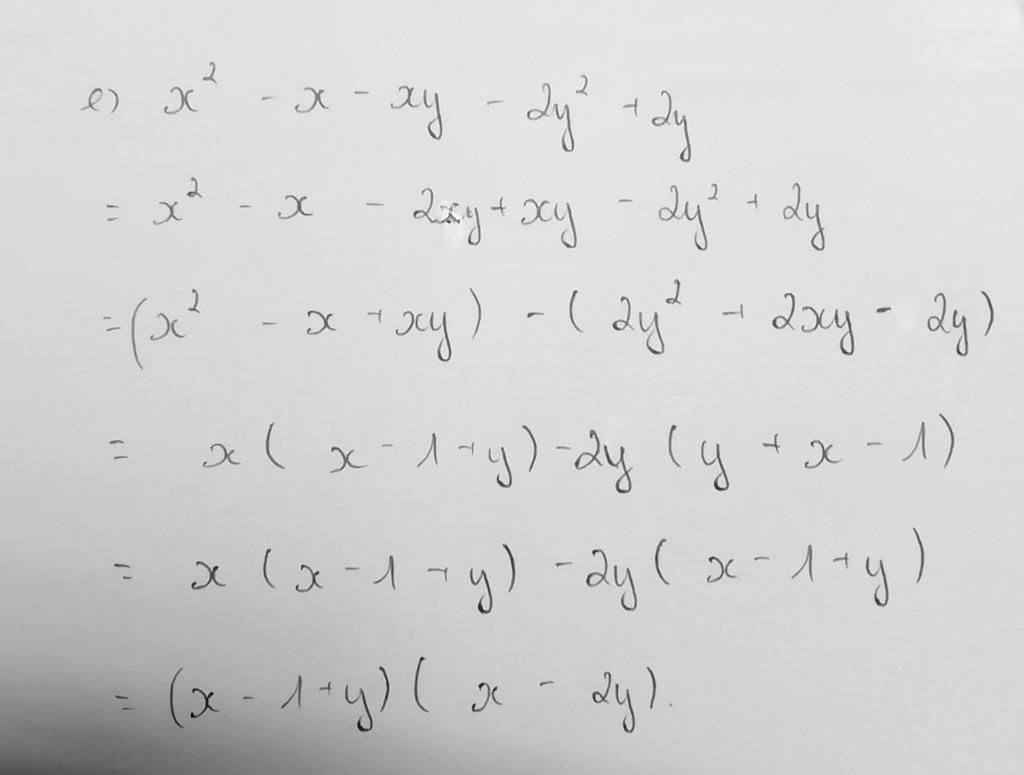 e) x² - x - xy - 2y² + 2y
= x² - x - 2xy + xy - 2y² + 2y
= (x² - x + xy) - (2y² + 2xy - 2y)
= x (x - 1 + y) - 2y (y + x - 1)
= x (x - 1 + y) - 2y (x - 1 + y)
= (x - 1 + y) (x - 2y).